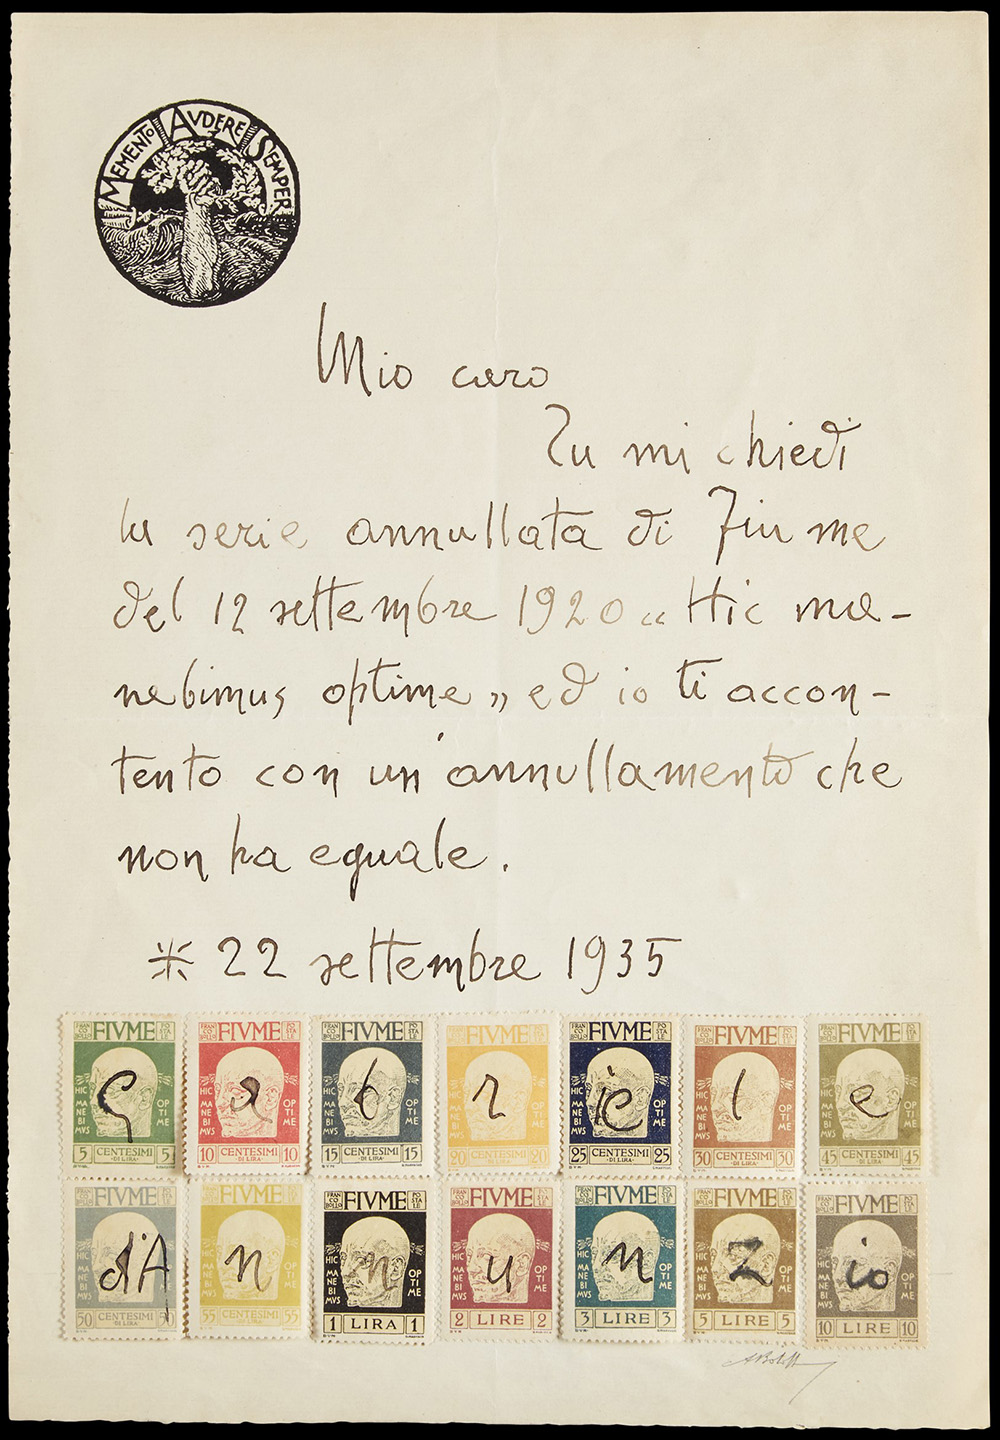 MEMENTO AVDERE SEMPER
Mio caro
Tu mi chiedi
la serie annullata di Fiume
del 12 settembre 1920 „ Hic ma-
nebimus optime „ ed io ti accon-
tento con un'annullamento che
non ha eguale.
* 22 settembre 1935
FRANCOBOLLO FIVME POSTALE HIC MANEBIMVS OPTIME 5 CENTESIMI DI LIRA 5 G
FRANCOBOLLO FIVME POSTALE HIC MANEBIMVS OPTIME 10 CENTESIMI DI LIRA 10 a
FRANCOBOLLO FIVME POSTALE HIC MANEBIMVS OPTIME 15 CENTESIMI DI LIRA 15 b
FRANCOBOLLO FIVME POSTALE HIC MANEBIMVS OPTIME 20 CENTESIMI DI LIRA 20 r
FRANCOBOLLO FIVME POSTALE HIC MANEBIMVS OPTIME 25 CENTESIMI DI LIRA 25 ie
FRANCOBOLLO FIVME POSTALE HIC MANEBIMVS OPTIME 30 CENTESIMI DI LIRA 30 l
FRANCOBOLLO FIVME POSTALE HIC MANEBIMVS OPTIME 45 CENTESIMI DI LIRA 45 e
FRANCOBOLLO FIVME POSTALE HIC MANEBIMVS OPTIME 50 CENTESIMI DI LIRA 50 d'A
FRANCOBOLLO FIVME POSTALE HIC MANEBIMVS OPTIME 55 CENTESIMI DI LIRA 55 n
FRANCOBOLLO FIVME POSTALE HIC MANEBIMVS OPTIME 1 LIRA 1 n
FRANCOBOLLO FIVME POSTALE HIC MANEBIMVS OPTIME 2 LIRE 2 u
FRANCOBOLLO FIVME POSTALE HIC MANEBIMVS OPTIME 3 LIRE 3 n
FRANCOBOLLO FIVME POSTALE HIC MANEBIMVS OPTIME 5 LIRE 5 z
FRANCOBOLLO FIVME POSTALE HIC MANEBIMVS OPTIME 10 LIRE 10 io